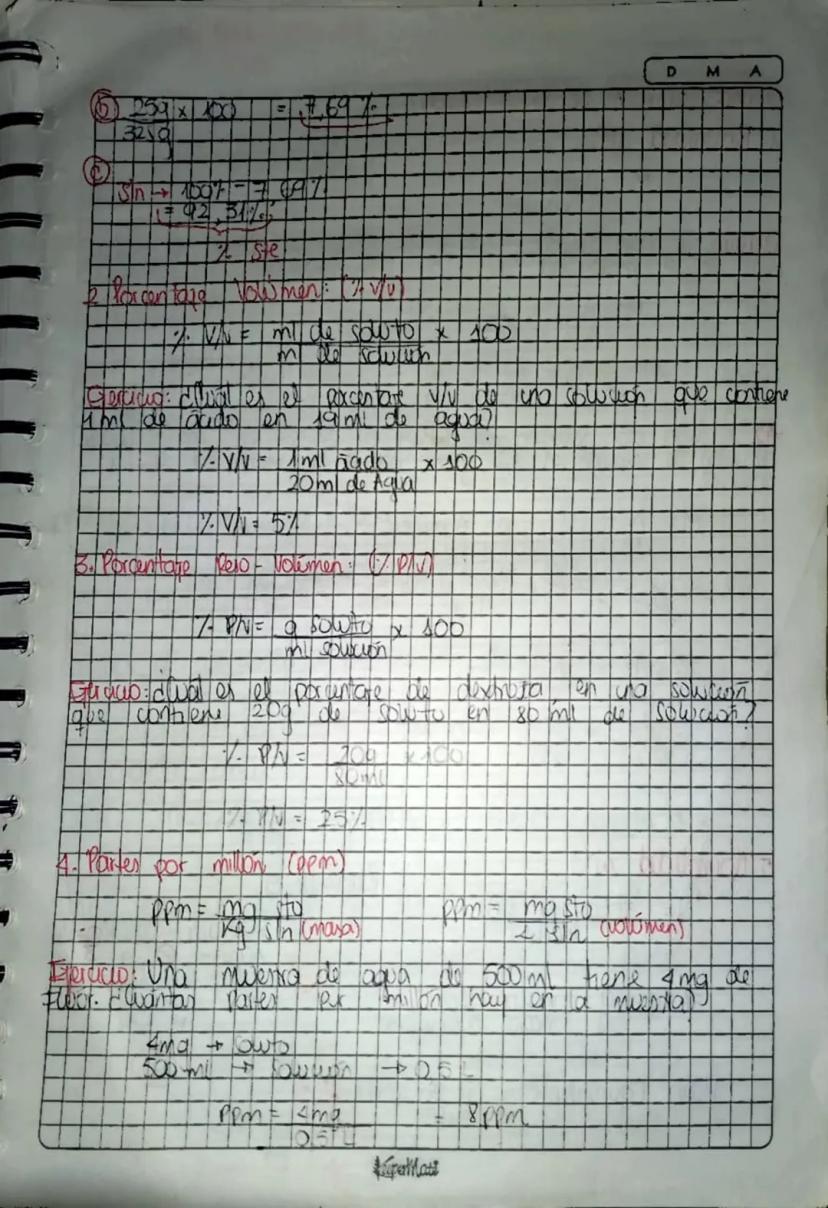 D M A
b) 25g x 100 = 7,69 %
325g
c)
Sln → 100% - 7,69%
= 92,31%
% Ste
2. Porcentage Volúmen: (% v/v)
% V/V = ml de soluto x 100
ml de solución
Ejercicio: ¿Cuál es el porcentaje v/v de una solución que contiene
1ml de ácido en 19ml de agua?
% V/V = 1ml ácido x 100
20ml de Agua
% V/V = 5%
3. Porcentage Peso - Volúmen: (% P/V)
% P/V = g soluto x 100
ml solución
Ejercicio: ¿Cuál es el porcentaje de dextrosa en una solución
que contiene 20g de soluto en 80 ml de solución?
% P/V = 20g x 100
80ml
% P/V = 25%
4. Partes por millón (ppm)
ppm = mg sto ppm = mg sto
Kg sln (masa) L sln (volúmen)
Ejercicio: Una muestra de agua de 500ml tiene 4mg de
Fluor. ¿Cuántas partes por millón hay en la muestra?
4mg → soluto
500 ml → solución → 0,5 L
ppm = 4mg = 8 ppm
0,5 L